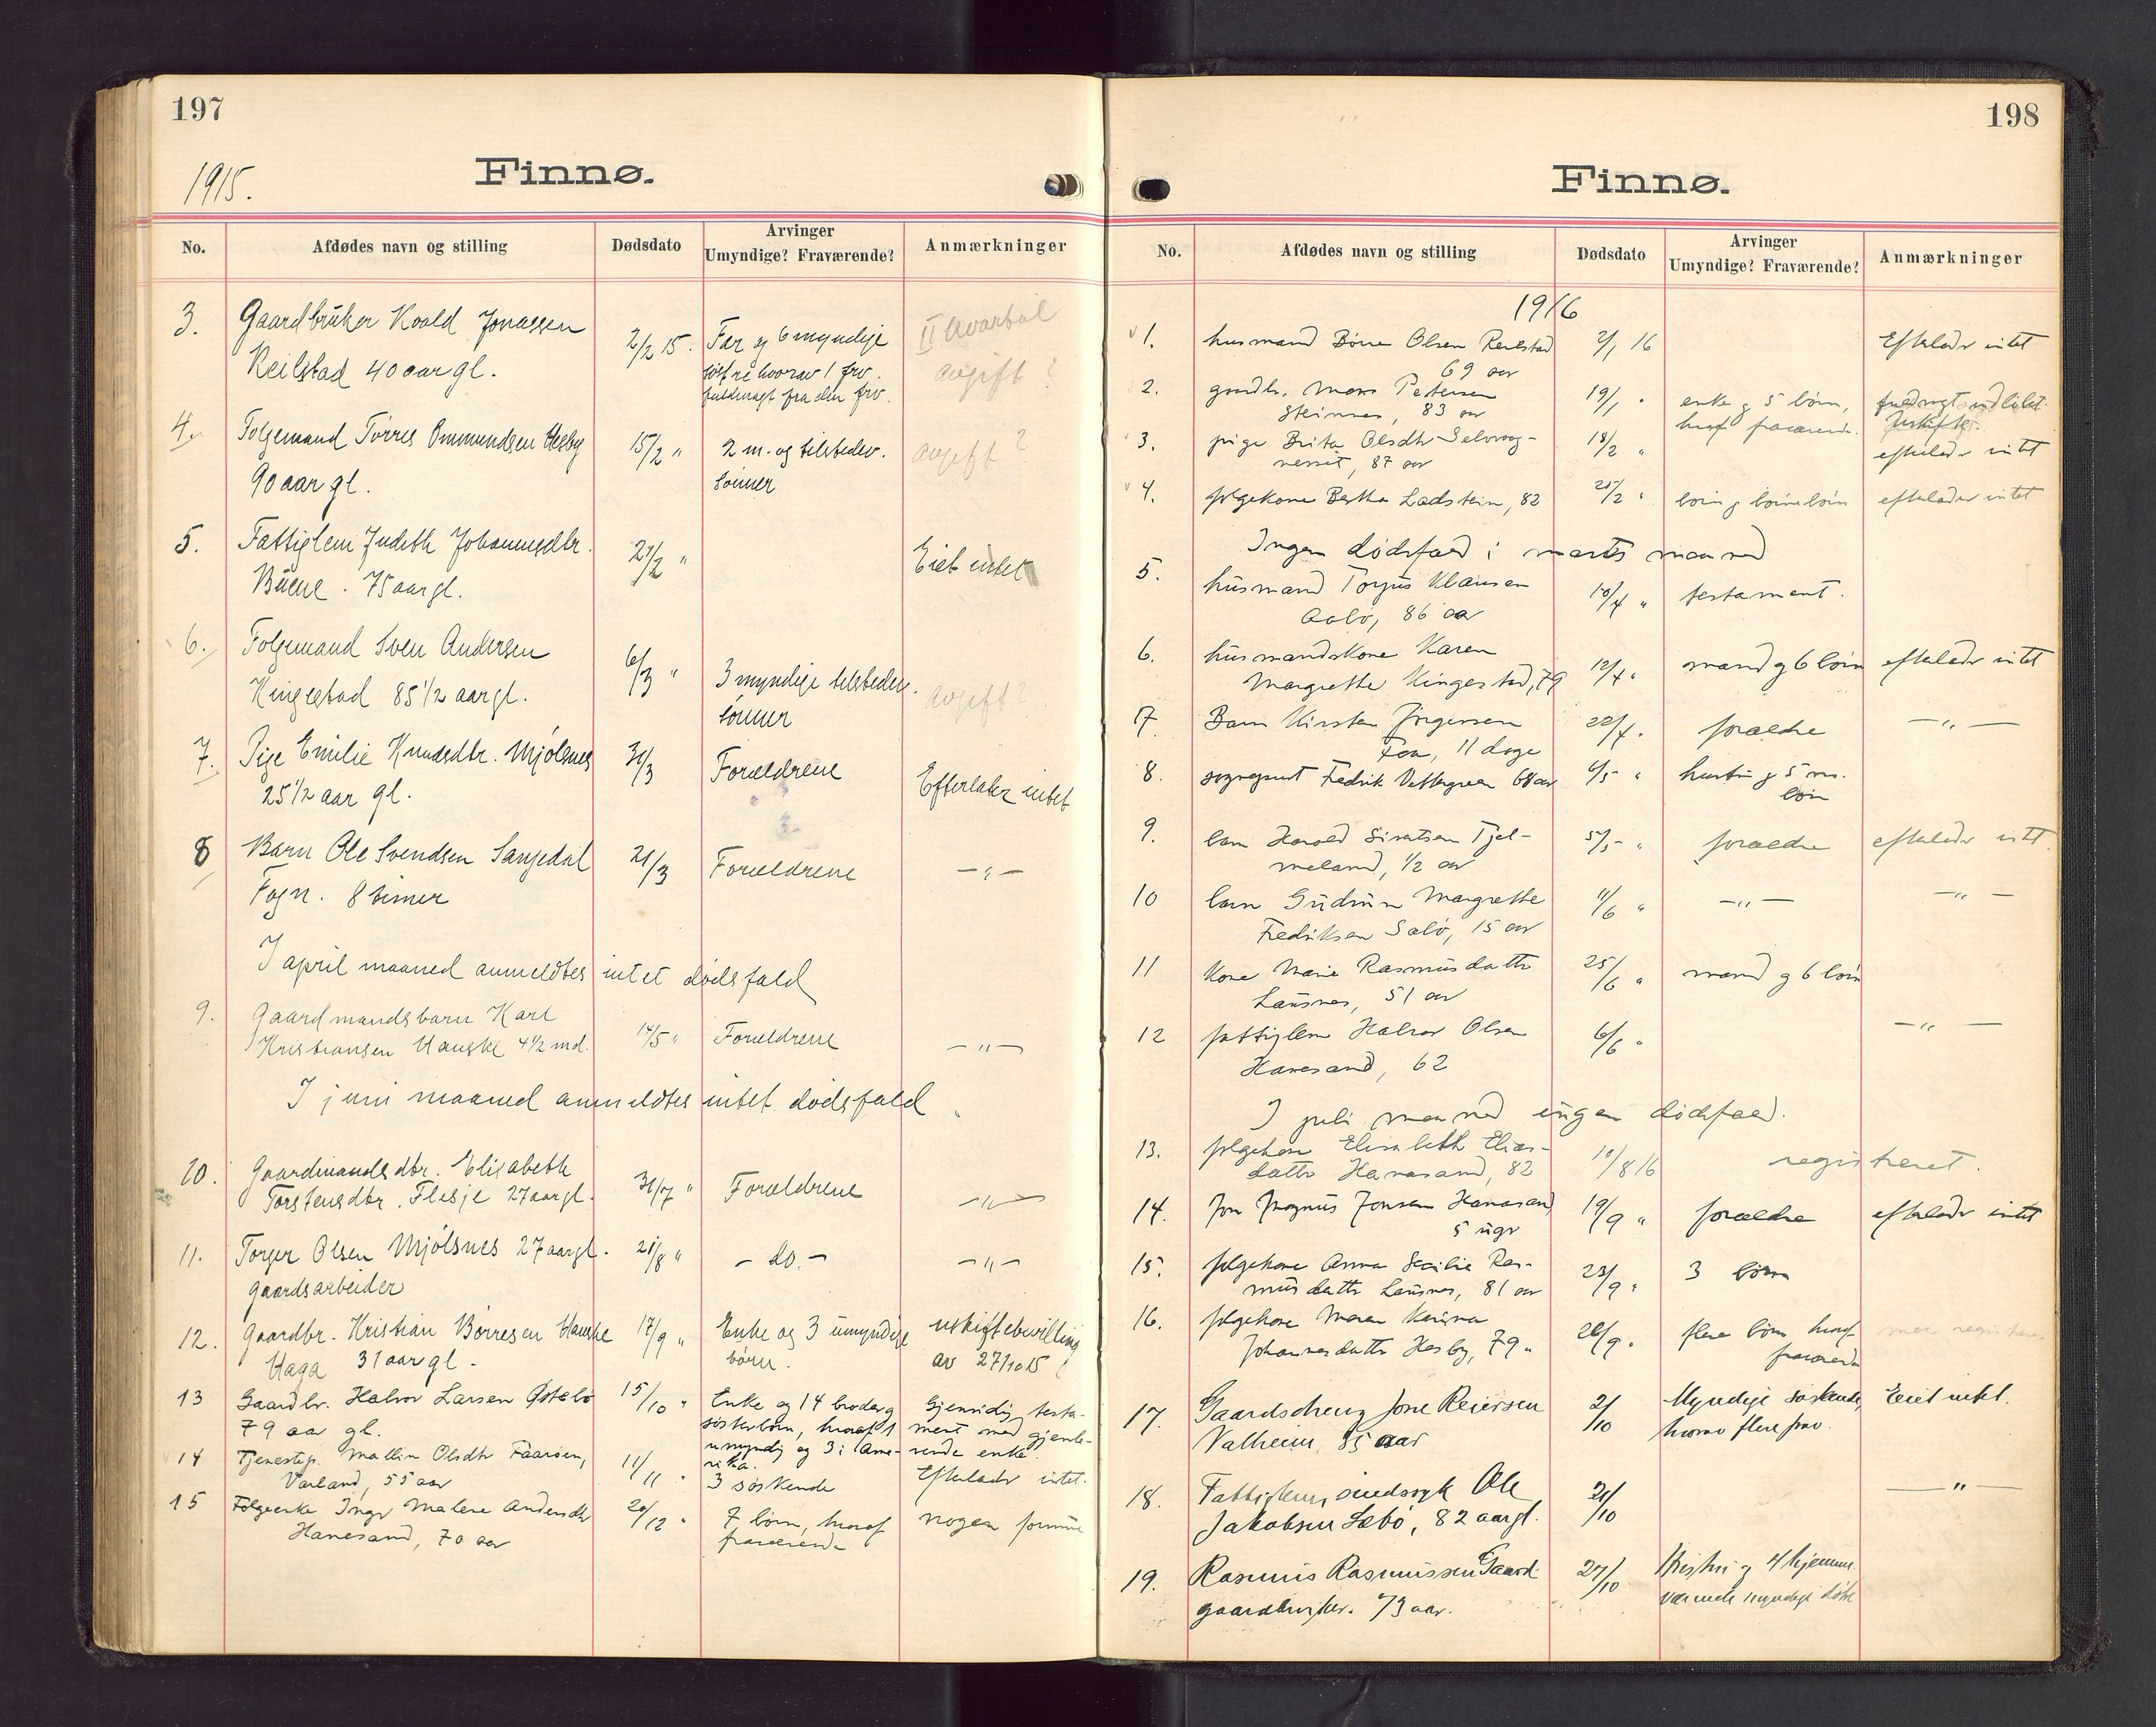 197
Finnø.
1915.
No. Afdødes navn og stilling Dødsdato Arvinger Umyndige? Fraværende? Anmærkninger
3. Gaardbruker Roald Jonassen 2/2 15. Far og 6 myndige II kvartal
Reilstad 40 aar gl. hvorav 1 frv. avgift?
fuldmagt fra den frv.
4. Følgemand Tørres Ommundsen Hesby 15/2 " 2 m. og tilstedev. avgift?
90 aar gl. sønner
5. Fattiglem Judith Johannesdtr. 27/2 " Eiet intet
75 aar gl.
6. Følgemand Sven Andersen 6/3 " 3 myndige tilstedev. avgift?
Kingestad 85 1/2 aar gl. sønner
7. Pige Emilie Knudsdtr. Mjølsnes 31/3 Forældrene Efterlater intet
25 1/2 aar gl.
8 Barn Ole Svendsen Sangedal 21/3 Forældrene — " —
Fogn. 8 timer
I april maaned anmeldtes intet dødsfald
9. Gaardmandsbarn Karl 14/5 " Forældrene — " —
Kristiansen Hauske 4 1/2 md.
I juni maaned anmeldtes intet dødsfald.
10. Gaardmandsdtr. Elisabeth 31/7 " Forældrene — " —
Torstensdtr. Flesje 27 aar gl.
11. Torger Olsen Mjølsnes 27 aar gl. 21/8 " — do. — — " —
gaardsarbeider
12. Gaardbr. Kristian Børresen Hauske 17/9 " Enke og 3 umyndige uskiftebevilling
Haga 31 aar gl. børn. av 27/10 15
13 Gaardbr. Halvor Larsen Østebø 15/10 " Enke og 14 broder og Gjensidig testa-
79 aar gl. søsterbørn, hvoraf 1 ment med gjenle-
umyndig og 3 i Ame- vende enke.
rika.
14 Tjenestep. Mallin Olsdtr Faarøen, 11/11 " 3 søskende Efterlader intet.
Varland, 55 aar
15 Følgeenke Inger Malene Andersdtr 20/12 " 7 børn, hvoraf nogen formue
Hanesand, 70 aar fraværende
198
Finnø.
No. Afdødes navn og stilling Dødsdato Arvinger Umyndige? Fraværende? Anmærkninger
1916
1. husmand Børre Olsen Reilstad 2/1 16 Efterlader intet
69 aar
2. gaardbr. Mons Pedersen 19/1 " enke og 5 børn,
Steinnes, 83 aar hvoraf fraværende.
3. pige Brita Olsdtr Selvaag- 18/2 " efterlader intet
nesset, 87 aar
4. følgekone Bertha Ladstein, 82 /2 " børn og børnebørn efterlader intet
Ingen dødsfald i marts maaned
5. husmand Torjus Klausen 10/4 " testament.
Aabø, 86 aar
6. husmandskone Karen 12/4 " mand og 6 børn efterlader intet
Margrethe Kingestad, 79
7. Barn Kirsten Jørgensen 22/4 " forældre — " —
Foa, 11 dage
8. sogneprest Fredrik Vettergreen 68 aar 6/5 " hustru og 5 m.
børn
9. barn Harald Sivertsen Fjel- 5/5 " forældre efterlader intet.
meland, 1/2 aar
10 barn Gudrun Margrethe 11/6 " — " — — " —
Fredriksen Sæbø, 15 aar
11 Kone Marie Rasmusdatter 25/6 " mand og 6 børn
Lausnes, 51 aar
12 fattiglem Halvor Olsen 6/6 " — " —
Hanesand, 62
I juli maaned ingen dødsfald.
13. følgekone Elisabeth Elias- 10/8 16 registreret.
datter Hanasand, 82
14. Jon Magnus Jonsen Hanasand 19/9 " forældre efterlader intet
5 uger
15. følgekone Anna Secilie Ras- 23/9 " 3 børn
musdatter Lausnes, 81 aar
16. følgekone Maren Karina 28/9 " flere børn hvoraf
Johannesdatter Hesby, 79 " fraværende
17. Gaardsdreng Jone Reiersen 2/10 Myndige søskende, Eiet intet.
Valheim, 85 aar hvorav flere frav.
18. Fattiglem, sindssyk Ole 21/10 — " —
Jakobsen Sæbø, 82 aar gl.
19. Rasmus Rasmussen Gaard 27/10 Hustru og 4 hjemme-
gaardbruker. 73 aar. værende myndige døtre